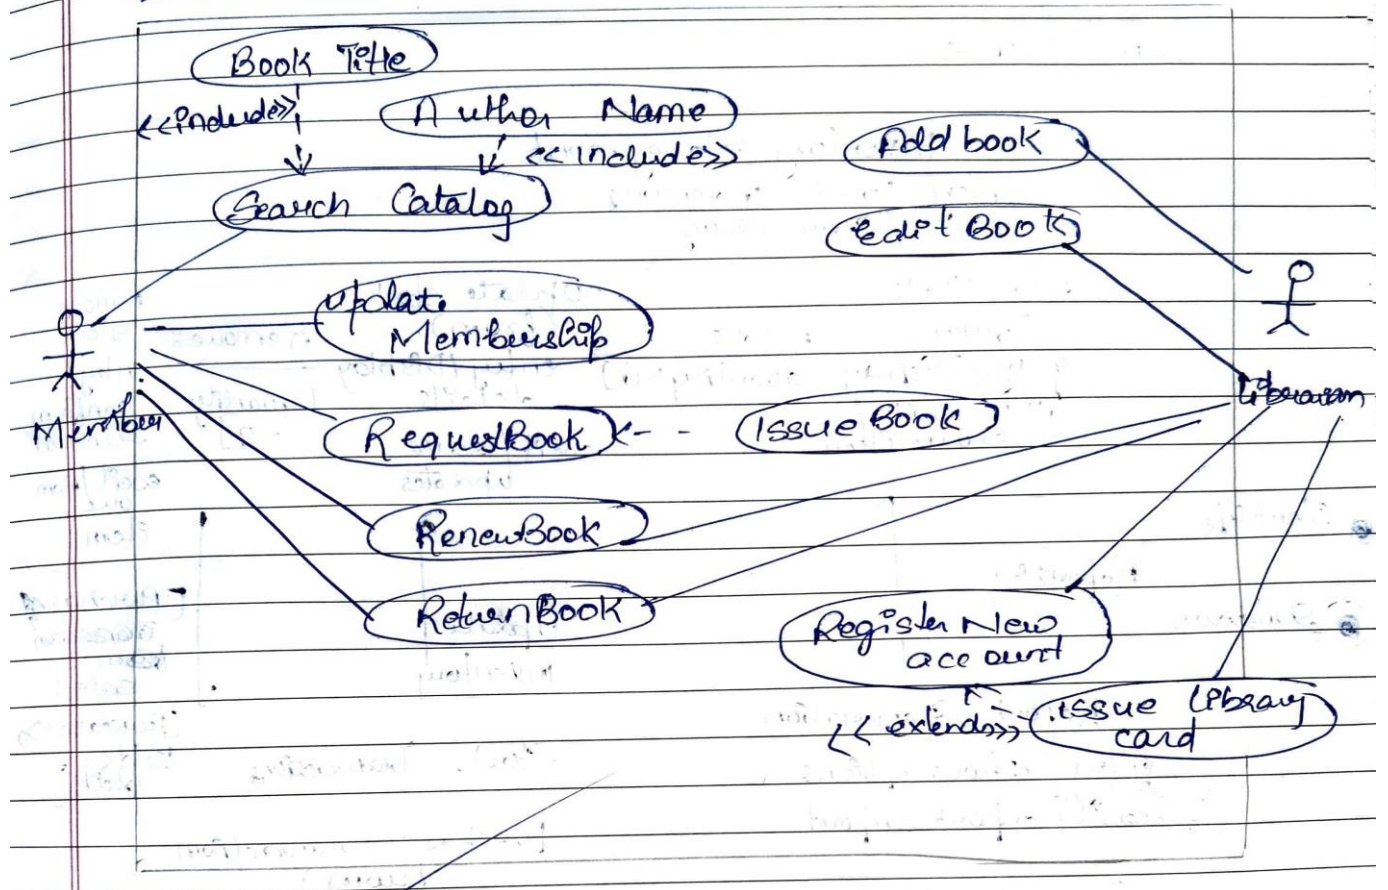 Book Title
<<include>>
Author Name
<<include>>
Add book
Search Catalog
Edit Book
Update
Membership
Member
Request Book
Issue Book
Librarian
Renew Book
Return Book
Register New
account
<<extends>>
issue Library
card